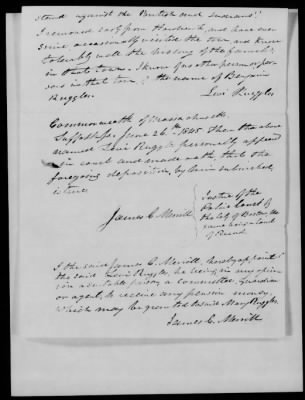 stand against the British and Indians.
I removed early from Hardwick, and have ever
since occasionally visited the town and know
tolerably well the history of the families
in that town. I know of no other person or per-
sons in that town of the name of Benjamin
Ruggles.
Levi Ruggles
Commonwealth of Massachusetts
Suffolk ss. June 26th 1845 Then the above
named Levi Ruggles personally appeared
in court and made oath, that the
foregoing deposition, by him subscribed,
is true.
James C. Merrill
Justice of the
Police Court of
the City of Boston the
same being a Court
of Record.
I the said James C. Merrill, hereby appoint
the said Levi Ruggles, he being in my opin-
ion a suitable person, a committee, Guardian
or agent, to receive any pension money,
which may be granted to said Mary Ruggles.
James C. Merrill